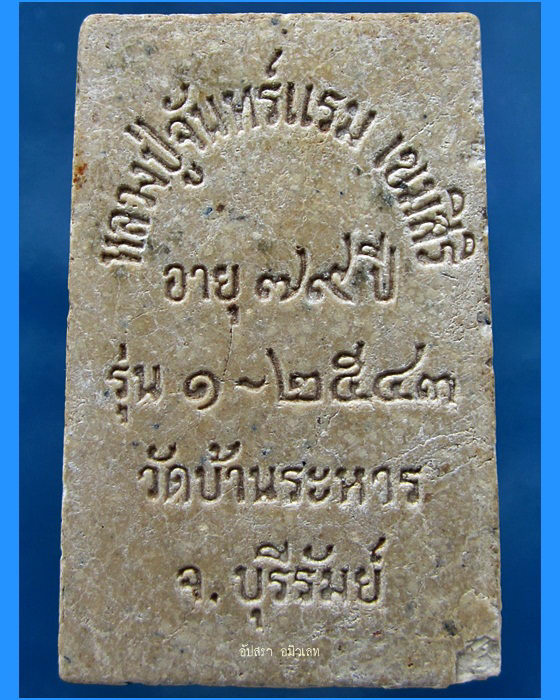 หลวงปู่จันทร์แรม เขมสิริ
อายุ ๗๙ ปี
รุ่น ๑ ~ ๒๕๔๓
วัดบ้านระหาร
จ. บุรีรัมย์
อัปสรา อมิวเลท